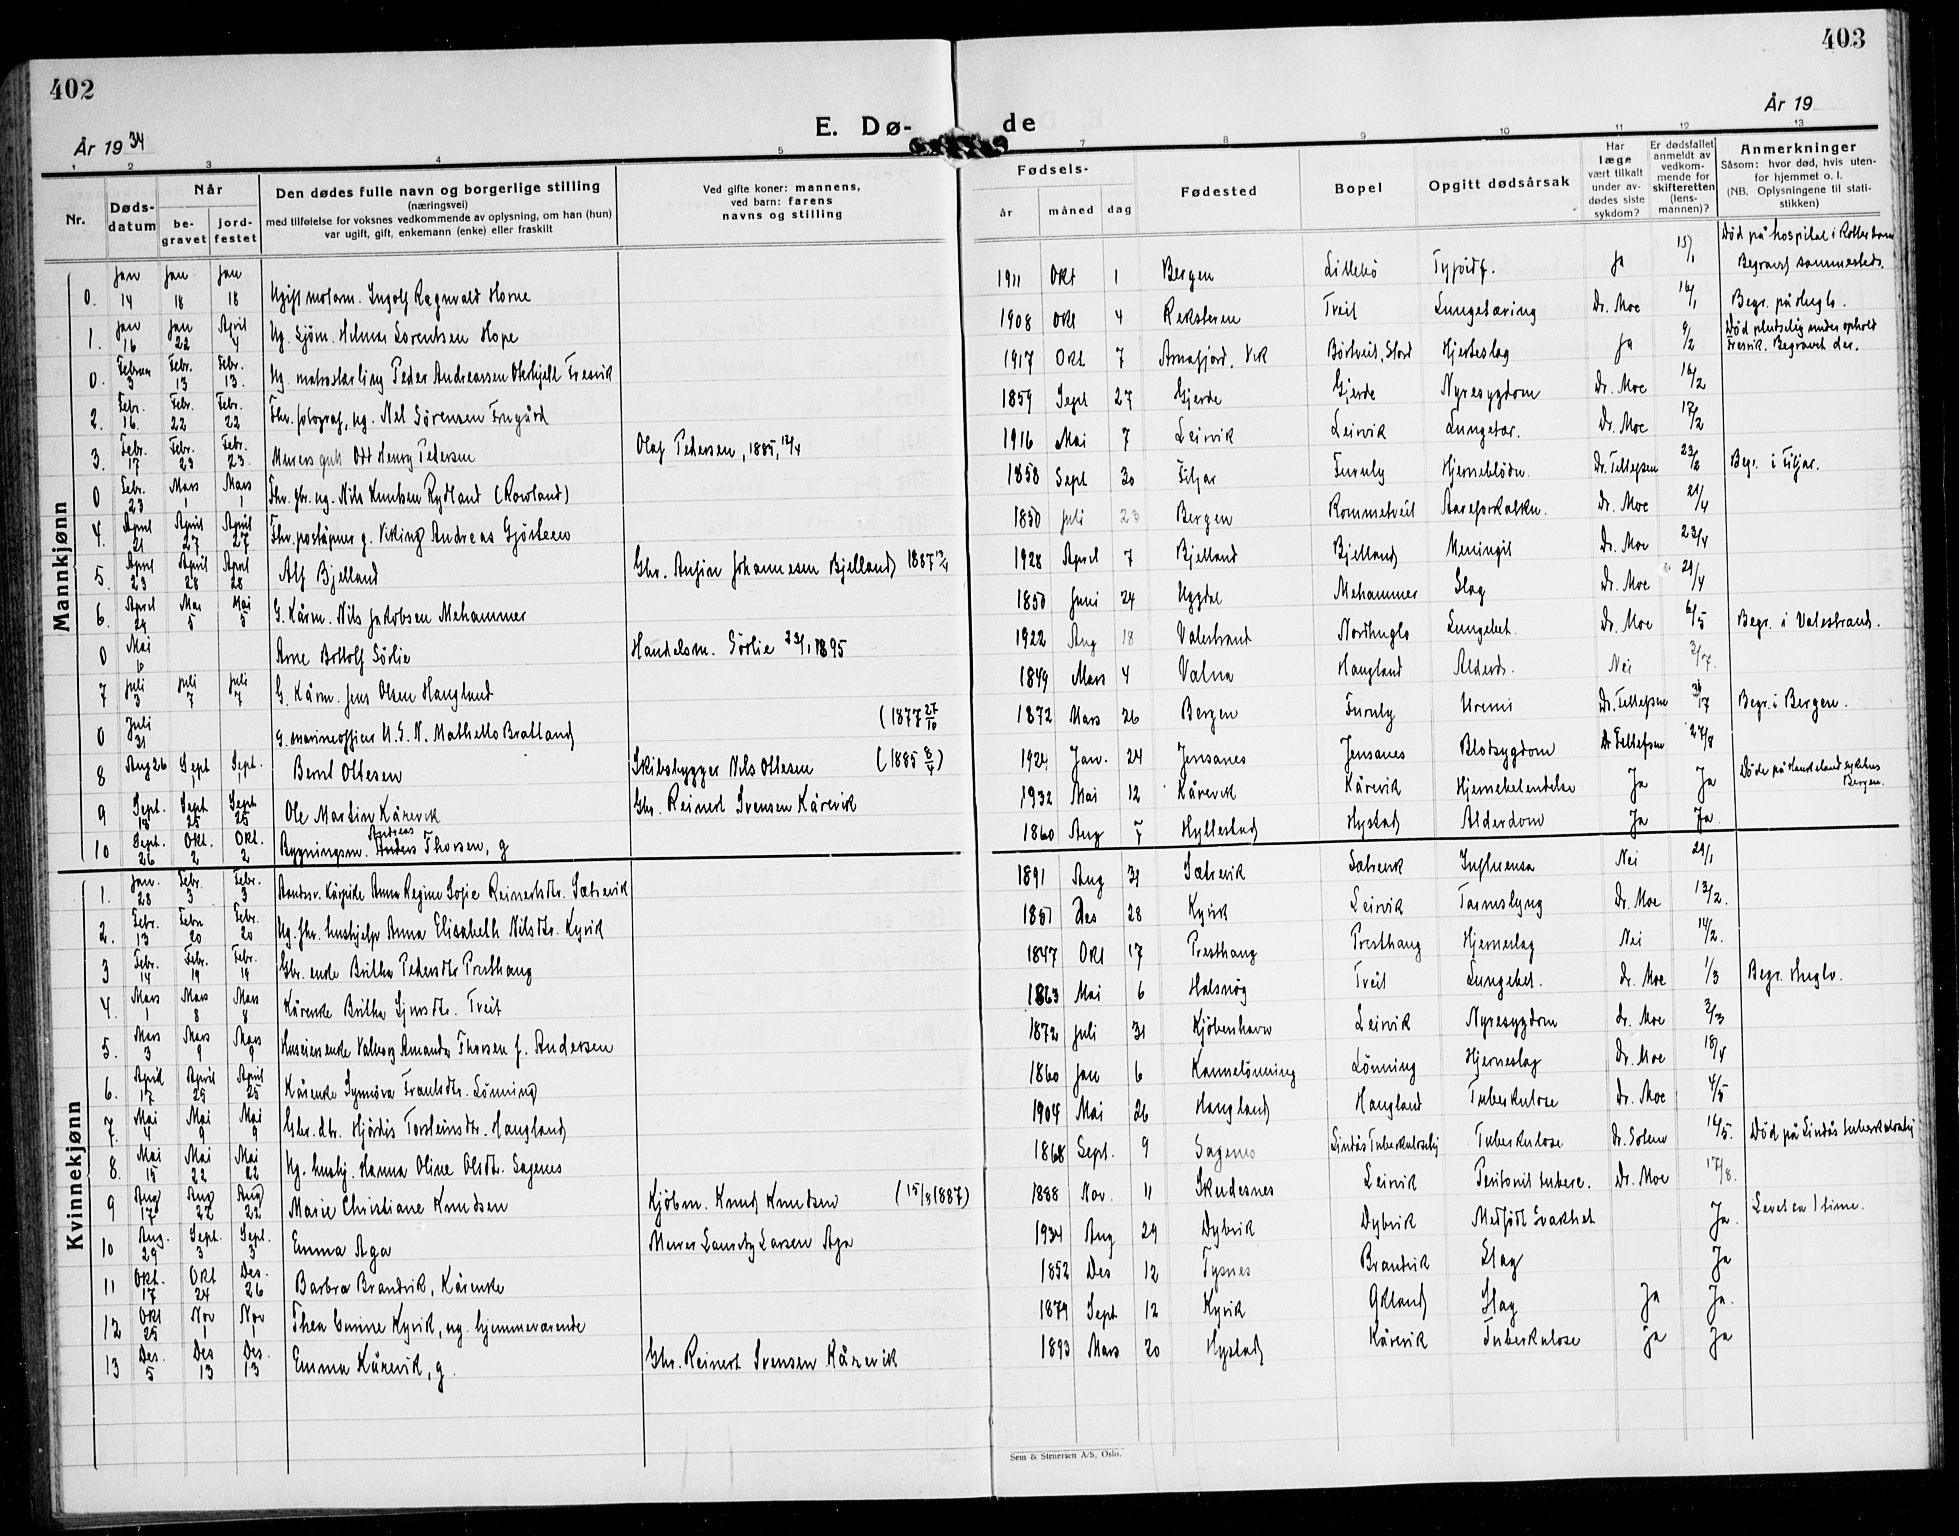 402
403
År 1934
E. Dø-
de
År 19
1 2 3 4 5 7 8 9 10 11 12 13
Nr.
Døds-
datum
Når
be-
gravet
jord-
festet
Den dødes fulle navn og borgerlige stilling
(næringsvei)
med tilføielse for voksnes vedkommende av oplysning, om han (hun)
var ugift, gift, enkemann (enke) eller fraskilt
Ved gifte koner: mannens,
ved barn: farens
navns og stilling
Fødsels-
år måned dag
Fødested
Bopel
Opgitt dødsårsak
Har
læge
vært tilkalt
under av-
dødes siste
sykdom?
Er dødsfallet
anmeldt av
vedkom-
mende for
skifteretten
(lens-
mannen)?
Anmerkninger
Såsom: hvor død, hvis uten-
for hjemmet o. l.
(NB. Oplysningene til stati-
stikken)
Mannkjønn
0. Jan 14 Jan 18 Jan 18 Ugift Ingolf Ragnvald Horne 1911 Okt 1 Bergen Lillebö Ja 15/1 Död på hospital i Rotterdam Begravet sammesteds.
1. Jan 16 Jan 22 April 4 Ug. Sjöm. Hilmer Sorentsen Hope 1908 Okt 4 Reksteren Tveit Lungetæring Dr. Moe 16/1 Begr. på Huglo.
0. Februar 3 Febr. 13 Febr. 13. Ug. Peder Andreassen Fresvik 1917 Okt 7 Arnafjord, Vik Börtveit, Stord Hjerteslag Ja 9/2 Död plutselig under ophold Fresvik. Begravet der.
2. Febr. 16. Febr. 22 Febr. 22 Fhr. fotograf, ug. Nel Sörensen 1859 Sept 27 Gjerde Gjerde Nyresygdom Dr. Moe 16/2
3. Febr. 17 Febr. 23 Febr. 23. Murers gutt Odd Henry Pedersen Olaf Pedersen, 1885, 12/4 1916 Mai 7 Leirvik Leirvik Lungetær. Dr. Moe 17/2
0 Febr. 23 Mars 1 Mars 1 Fhr. gbr. ug. Nils Knutsen Rydland (Rowland) 1858 Sept 30 Fitjar Furuly Hjerneblödn. Dr. Tellefsen 23/2 Begr. i Fitjar.
4. April 21 April 27 April 27 Fhr. poståpner g. Viking Andreas Gjösteen 1850 Juli 23 Bergen Rommetveit Aareforkalkn. Dr. Moe 21/4
5. April 23 April 28 April 28 Alf Bjelland Gbr. Johannesen Bjelland 1928 April 7 Bjelland Bjelland Dr. Moe 23/4
6. April 29 Mai 5 Mai 5 G. Kårm. Nils Jakobsen Mehammer 1850 Juni 24 Uggdal Mehammer Slag Dr. Moe 29/4
0 Mai 6 Arne Bottolf Sörlie Handelsm. Sörlie 1895 1922 Aug 18 Valestrand Nordhuglo Lungebet. Dr. Moe 6/5 Begr. i Valestrand.
7 Juli 3 Juli 7 Juli 7 G. Kårm. Jens Olsen Haugland 1849 Mars 4 Valna Haugland Alderd. Nei 3/7.
0 Juli 31 G. marineofficer U.S.N. Mathello Bratland (1877 27/10 1872 Mars 26 Bergen Furuly Uremi Dr. Tellefsen 31/7 Begr. i Bergen.
8 Aug 26 Sept 1 Sept. 1 Bernt Ottesen Skibsbygger Nils Ottesen (1885 8/4) 1924 Jan. 24 Jensanes Jensanes Blodsygdom Dr Tellefsen 27/8
9 Sept. 18 Sept. 25 Sept 25 Ole Martin Kårevik Gbr. Reinert Svensen Kårevik 1932 Mai 12 Kårevik Kårevik Hjernebetendelse Ja Ja Döde på Haukeland sykehus Bergen.
10 Sept. 26 Okt. 2 Okt. 2 Bygningsm. Andreas Anders Thorsen, g 1860 Aug 7 Hyllestad Hystad Alderdom Ja Ja.
Kvinnekjønn
1. Jan. 28 Febr. 3 Febr. 3 Åndssv. kårpike Anna Regine Sofie Reinertsdtr. Sætrevik 1891 Aug 31 Sætrevik Sætrevik Influensa Nei 29/1
2. Febr. 13 Febr 20 Febr. 20 Ug. fhr. hushjelp Anna Elisabeth Nilsdtr. Kyvik 1851 Des 28 Kyvik Leirvik Tarmslyng Dr. Moe 13/2.
3 Febr. 14 Febr. 19 Febr. 19 Gbr. enke Britha Pedersdtr Presthaug 1847 Okt 17 Presthaug Presthaug Hjerneslag Nei 14/2.
4. Mars 1 Mars 8 Mars 8 Kårenke Britha Tveit 1863 Mai 6 Halsnöy Tveit Lungebet. Dr. Moe 1/3 Begr. Huglo.
5. Mars 3 Mars 9 Mars 9 Huseierenke Valborg Amanda Thorsen f. Andersen 1872 Juli 31 Kjöbenhavn Leirvik Nyresygdom Dr. Moe 3/3
6. April 17 April 25 April 25 Kårenke Synnöva Lönning 1860 Jan 6 Kannelönning Lönning Hjerneslag Dr. Moe 18/4
7. Mai 4 Mai 9 Mai 9 Gbr. dtr. Hjördis Torsteinsdtr. Haugland 1904 Mai 26 Haugland Haugland Tuberkulose Dr. Moe 4/5
8. Mai 15 Mai 22 Mai 22 Ug. hushj. Hanna Oline Olsdtr. Sagenes 1868 Sept. 9 Sagenes Lindås Tuberkulosehj Tuberkulose Dr. Solem 16/5. Död på Lindås tuberkulosehj
9 Aug 17 Aug 22 Aug 22 Marie Christiane Knudsen Kjöbm. Knud Knudsen (15/8 1887) 1888 Nov. 11 Skudesnes Leirvik Peritonit tuberc. Dr. Moe 17/8.
10 Aug. 29 Sept. 3 Sept. 3 Emma Aga Murer Larsen Aga 1934 Aug 29 Dybvik Dybvik Medfödt svakhet Ja. Levet ca 1 time.
11 Okt. 17 Okt 24 Des. 26 Barbra Brandvik, Kårenke 1852 Des 12 Tysnes Brandvik Slag Ja
12 Okt 25 Nov 1 Nov 1 Thea Kyvik, ug. hjemmeværende 1879 Sept 12 Kyvik Slag Ja Ja.
13 Des. 5 Des 13 Des. 13 Emma Kårevik, g. Gbr. Reinert Svensen Kårevik 1893 Mars 20 Hystad Kårevik Tuberkulose ja Ja
Sem & Stenersen A/S, Oslo.